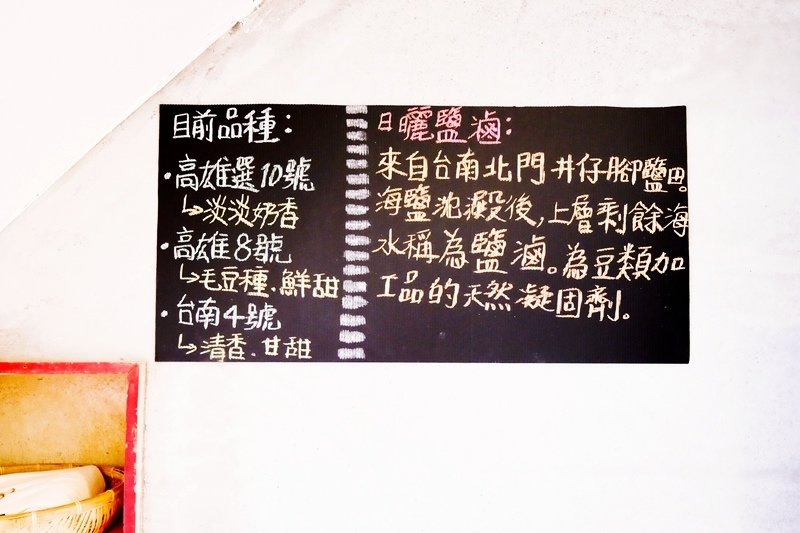 目前品種：
・高雄選10號
↳淡淡奶香
・高雄8號
↳毛豆種、鮮甜
・台南4號
↳清香、甘甜
日曬鹽滷：
來自台南北門井仔腳鹽田。
海鹽沈澱後，上層剩餘海
水稱為鹽滷。為豆類加
工品的天然凝固劑。